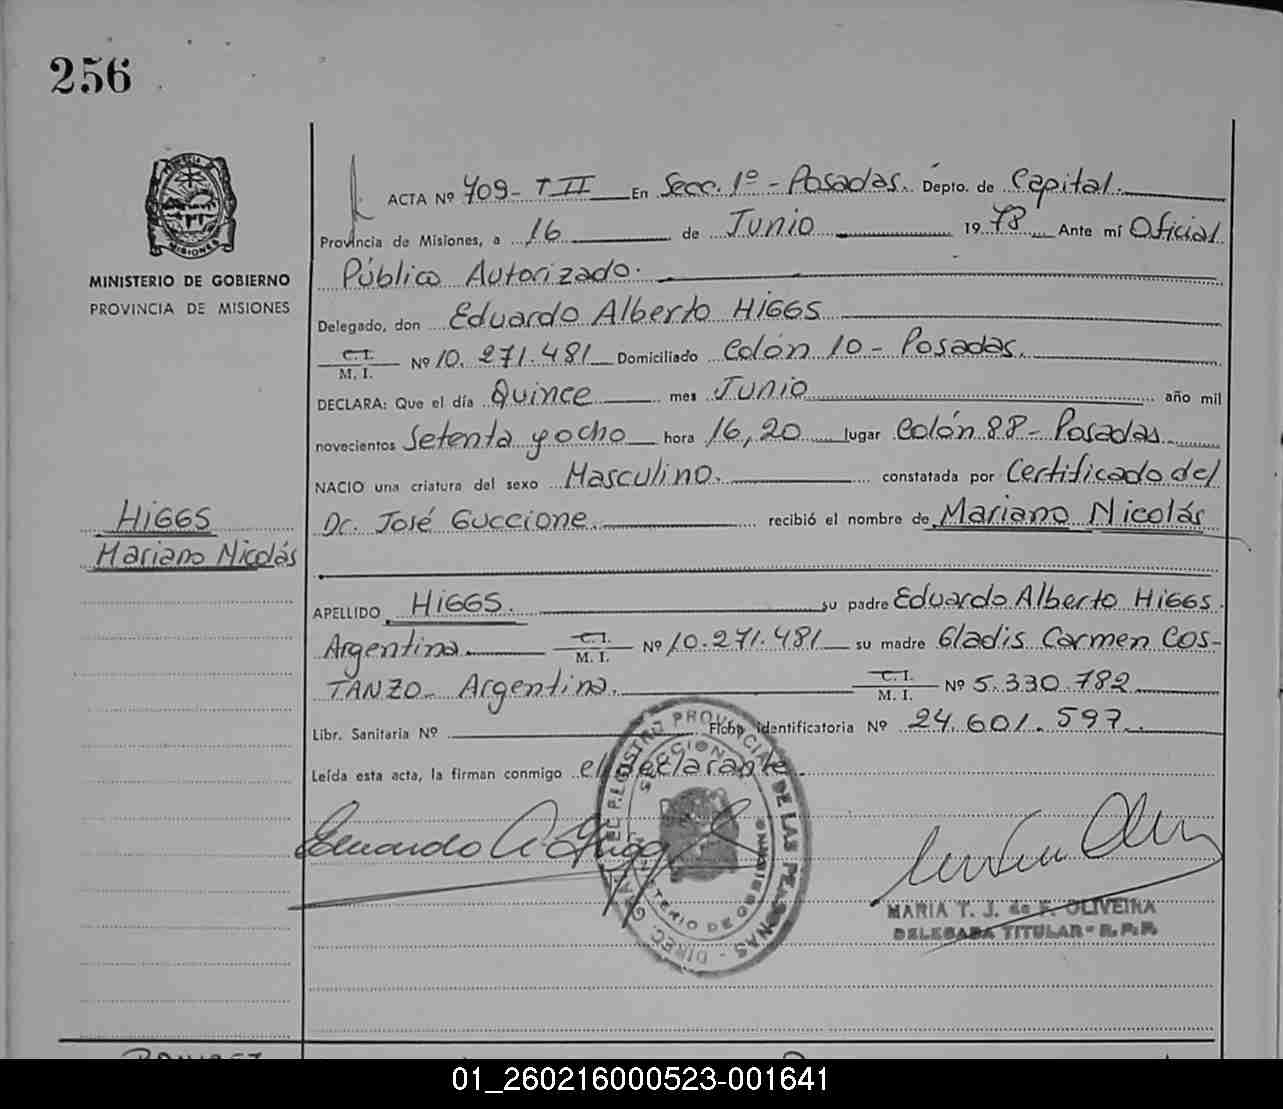 256
MINISTERIO DE GOBIERNO
PROVINCIA DE MISIONES
HiGGS
Mariano Nicolás
ACTA Nº 709- T II En Secc. 1º - Posadas. Depto. de Capital.
Provincia de Misiones, a 16 de Junio 1978 Ante mí Oficial
Público Autorizado.
Delegado, don Eduardo Alberto HiGGS
C.I. M.I. Nº 10.271.481 Domiciliado Colón 10 - Posadas.
DECLARA: Que el día Quince mes Junio año mil
novecientos Setenta y ocho hora 16,20 lugar Colón 88 - Posadas
NACIO una criatura del sexo Masculino. constatada por Certificado del
Dr. José Guccione. recibió el nombre de Mariano Nicolás
APELLIDO HiGGS. su padre Eduardo Alberto HiGGS.
Argentina C.I. M.I. Nº 10.271.481 su madre Gladis Carmen COS-
TANZO- Argentina. C.I. M.I. Nº 5.330.782
Libr. Sanitaria Nº Ficha identificatoria Nº 24.601.597.
Leída esta acta, la firman conmigo el declarante.
PROVINCIAL DE LAS PERSONAS - DIREC. GRAL. DEL REGISTRO
SECCION
MINISTERIO DE GOBIERNO
MARIA T. J. de F. OLIVEIRA
DELEGADA TITULAR - R.P.P.
01_260216000523-001641